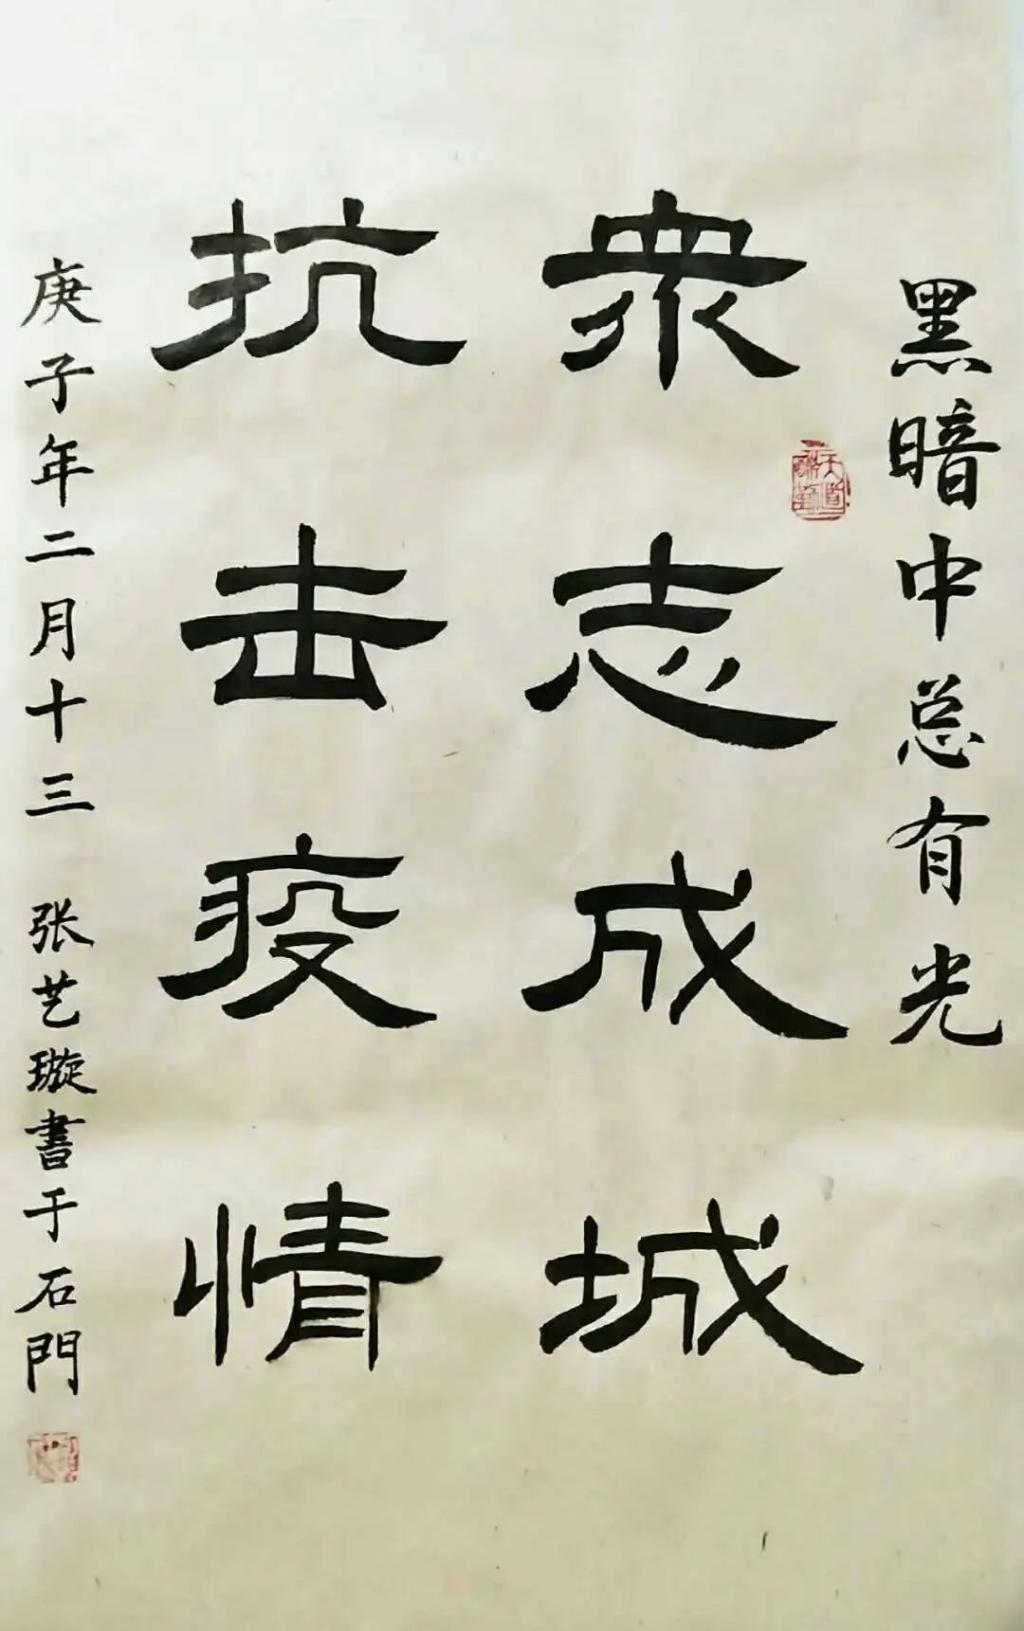 黑暗中总有光
衆志成城
抗击疫情
庚子年二月十三 张艺璇書于石門